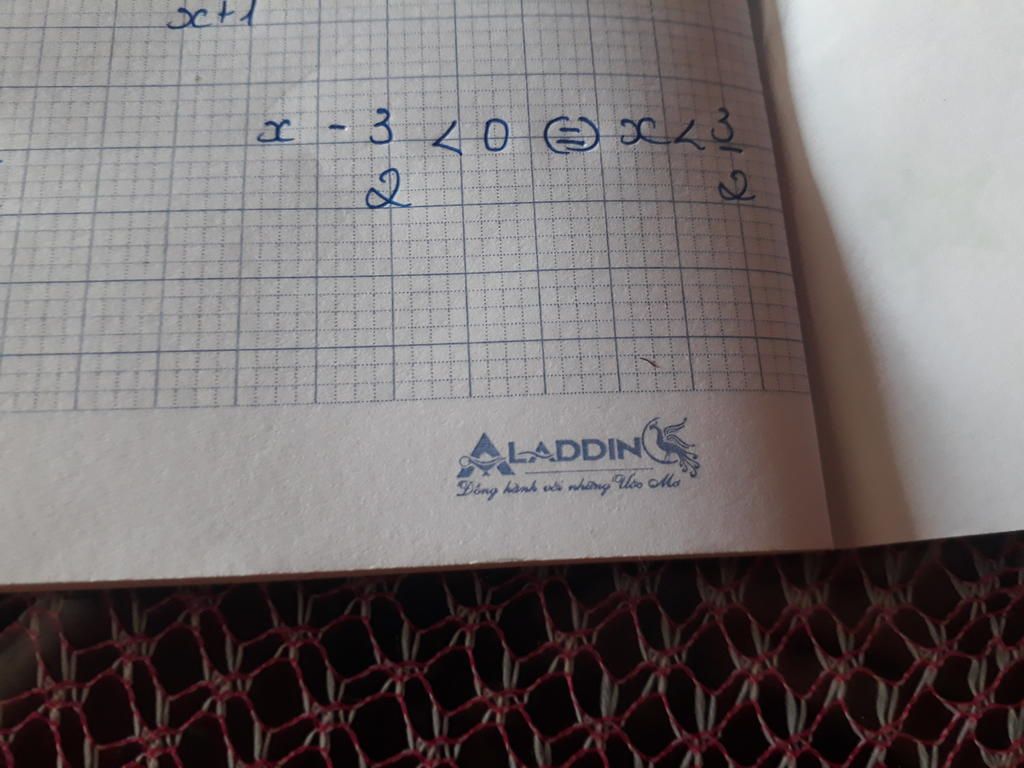 x+1
x - 3 < 0 ⇔ x < 3
2 2
ALADDIN
Đồng hành với những Ước Mơ